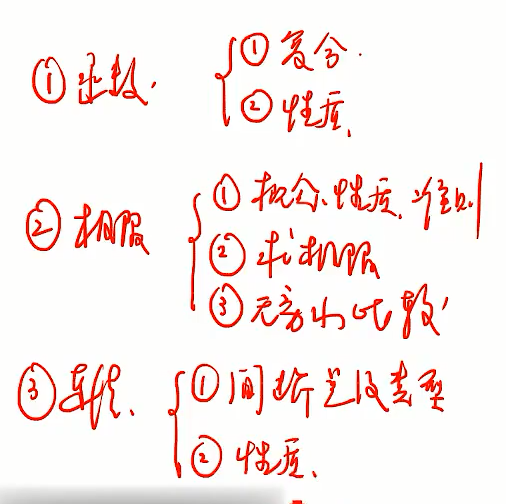 ① 函数. ① 复合.
② 性质.
② 极限 ① 概念、性质、准则
② 求极限
③ 无穷小比较
③ 连续. ① 间断点及类型
② 性质.